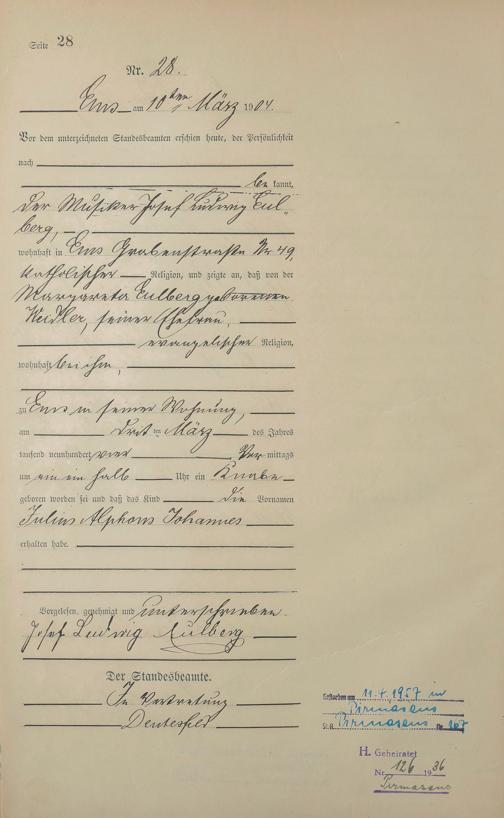 Seite 28
Nr. 28.
Ems am 10ten März 1904.
Vor dem unterzeichneten Standesbeamten erschien heute, der Persönlichkeit
nach
be kannt,
der Musiker Josef Ludwig Eul-
berg,
wohnhaft in Ems Grabenstraße Nr 49,
katholischer Religion, und zeigte an, daß von der
Margareta Eulberg geborenen
Weidler, seiner Ehefrau,
evangelischer Religion,
wohnhaft bei ihm,
zu Ems in seiner Wohnung,
am drit ten März des Jahres
tausend neunhundert vier Vor mittags
um ein ein halb Uhr ein Knabe
geboren worden sei und daß das Kind die Vornamen
Julius Alphons Johannes
erhalten habe.
Vorgelesen, genehmigt und unterschrieben
Josef Ludwig Eulberg
Der Standesbeamte.
In Vertretung
Gestorben am 11.4.1957 in
Pirmasens
St.A. Pirmasens Nr. 267
H. Geheiratet
Nr. 126 1936
Pirmasens